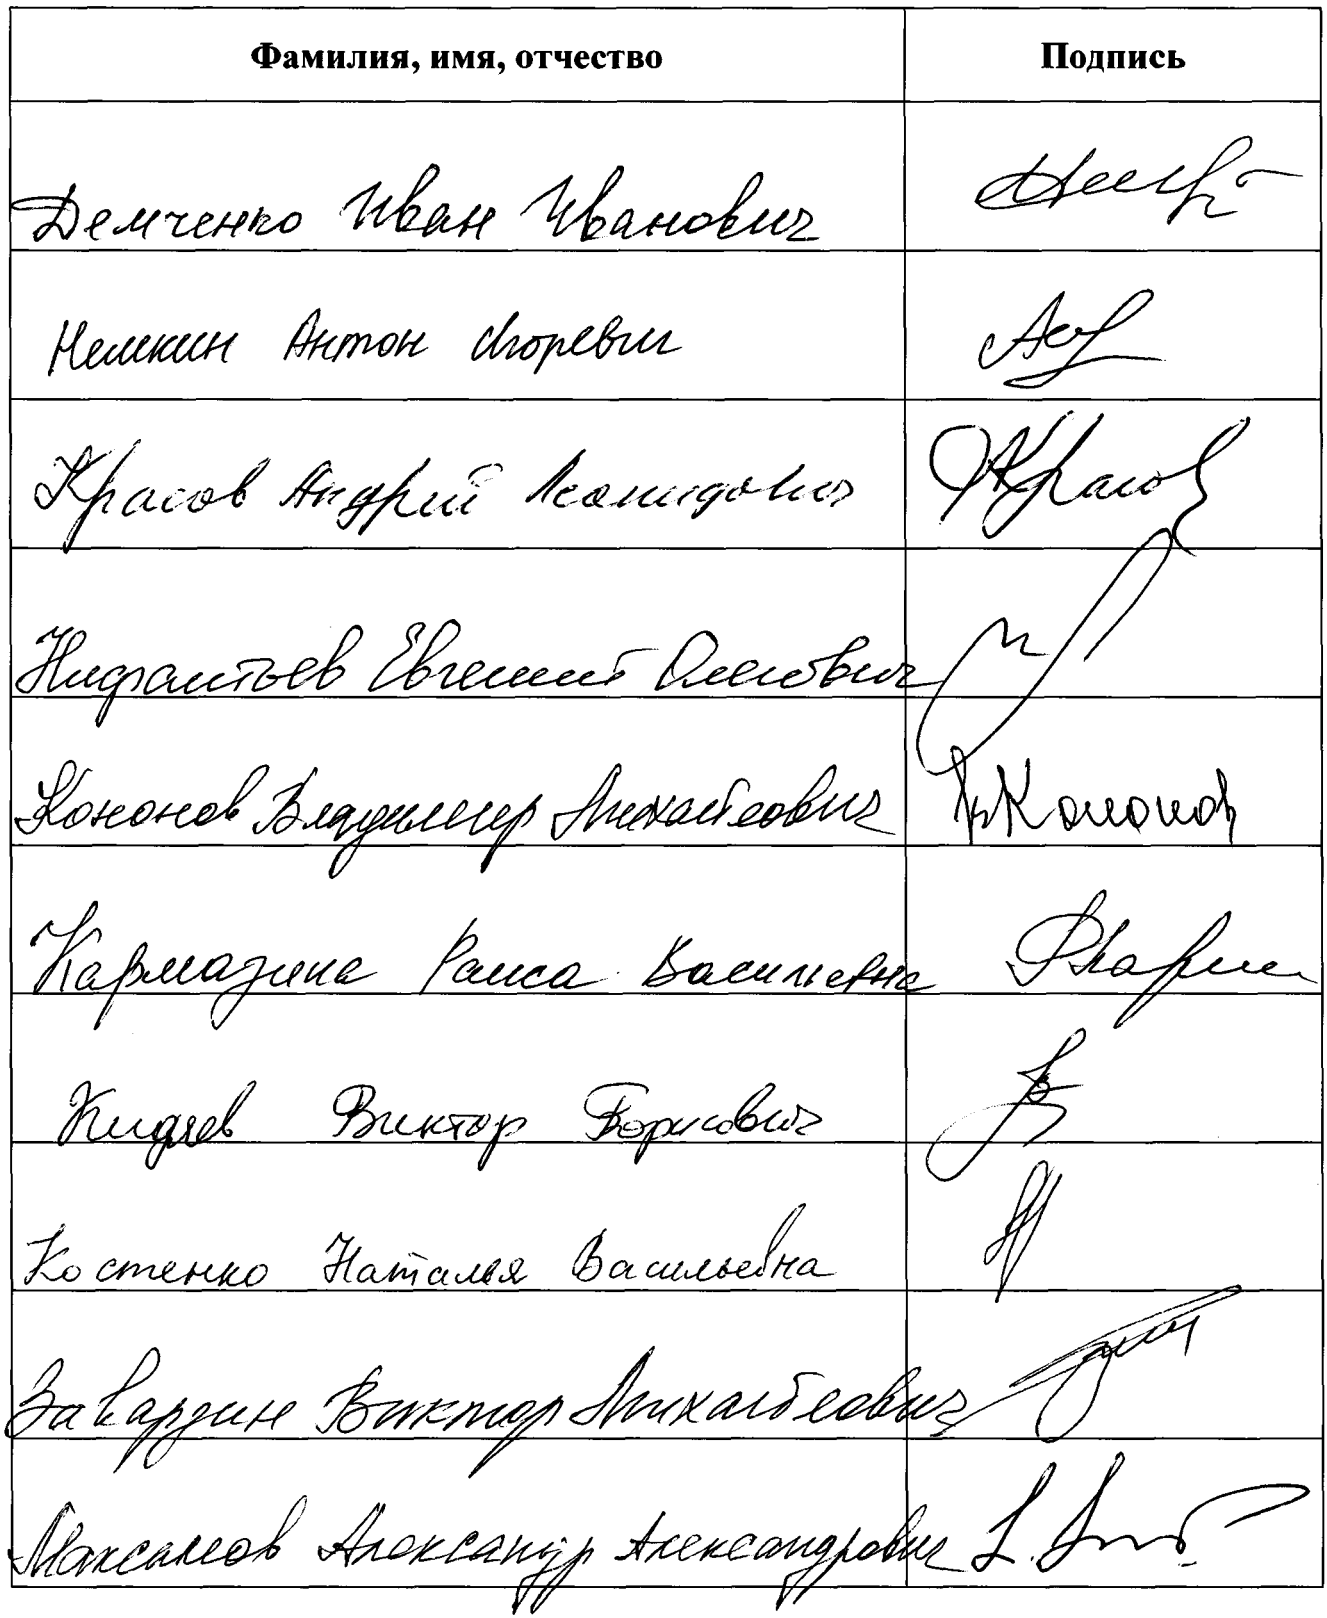 Фамилия, имя, отчество Подпись
Демченко Иван Иванович
Немкин Антон Игоревич
Красов Андрей Леонидович Красов
Нифантьев Евгений Олегович
Кононов Владимир Михайлович Кононов
Кармазина Раиса Васильевна
Кидяев Виктор Борисович
Костенко Наталья Васильевна
Заварзин Виктор Михайлович
Максимов Александр Александрович